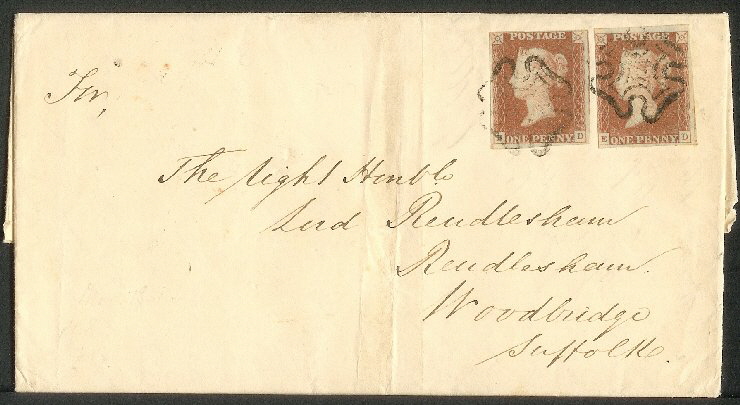 POSTAGE POSTAGE
ONE PENNY D E ONE PENNY D
For,
The right Honble
Lord Rendlesham
Rendlesham.
Woodbridge
Suffolk.